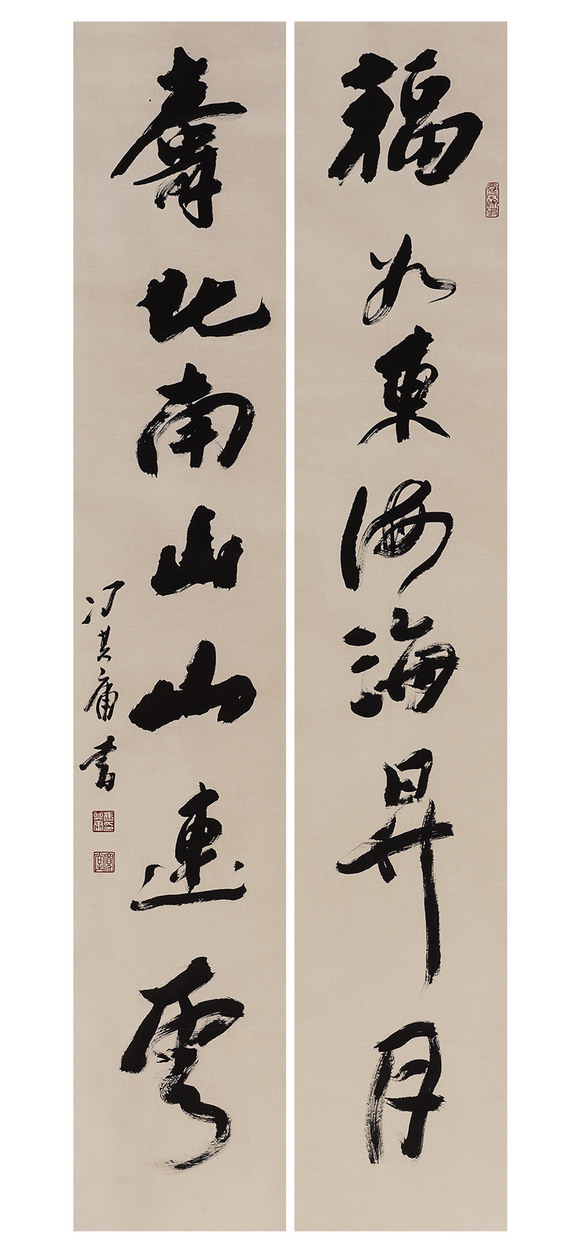 福如東海海昇月
壽比南山山連雲
冯其庸書